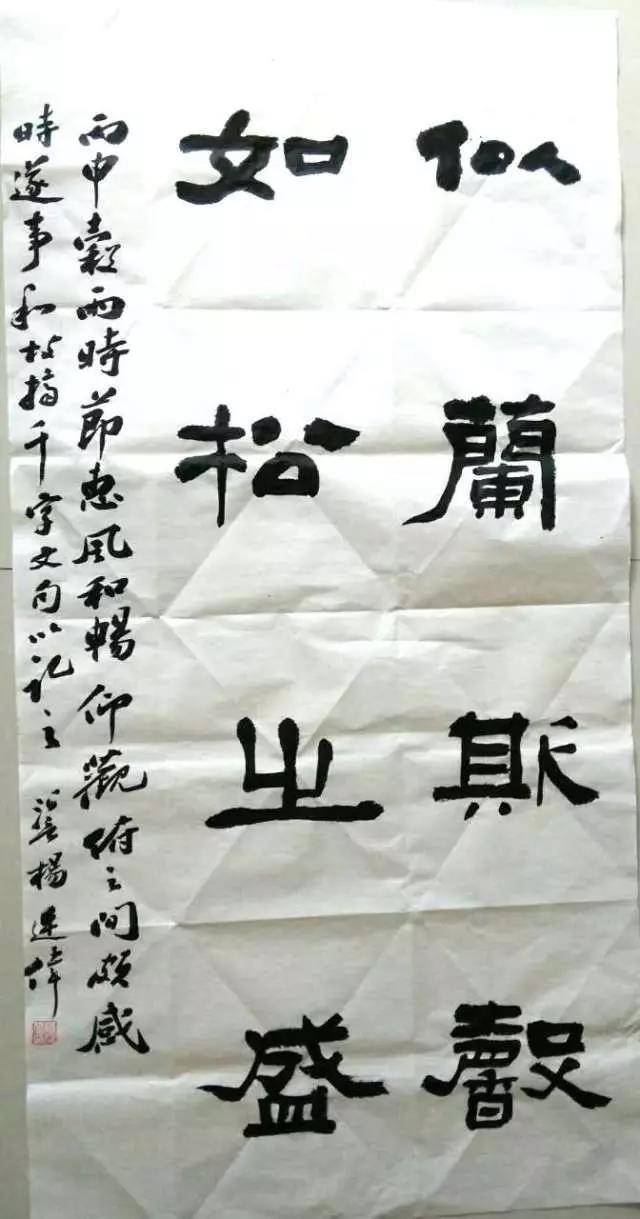 似蘭斯馨
如松之盛
丙申穀雨時節惠風和暢仰觀俯之間頗感
時遂事和故摘千字文句以記之 楊連